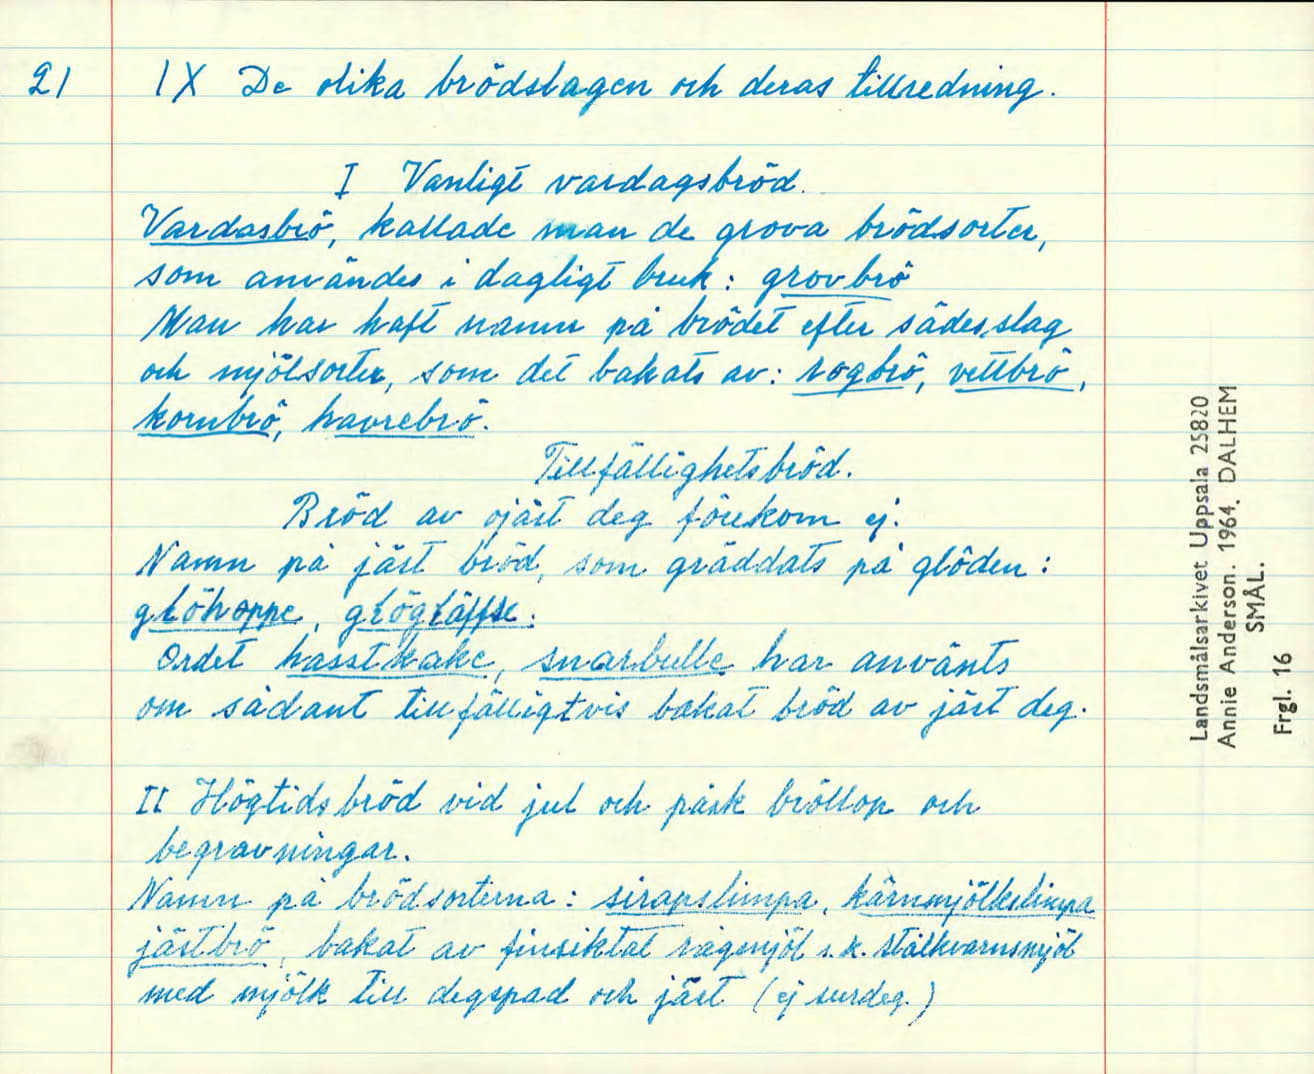 21 IX De olika brödslagen och deras tillredning.
I Vanligt vardagsbröd.
Vardasbrö, kallade man de grova brödsorter,
som användes i dagligt bruk: grovbrö
Man har haft namn på brödet efter sädesslag
och mjölsorter, som det bakats av: rogbrö, vettbrö,
kornbrö, havrebrö.
Tillfällighetsbröd.
Bröd av ojäst deg förekom ej.
Namn på jäst bröd, som gräddats på glöden:
glöhoppe,
Ordet hasstkake, snarbulle har använts
om sådant tillfälligtvis bakat bröd av jäst deg.
II Högtidsbröd vid jul och påsk bröllop och
begravningar.
Namn på brödsorterna: sirapslimpa, kärnmjölkslimpa
jästbrö, bakat av finsiktat rågmjöl s.k. stålkvarnsmjöl
med mjölk till degspad och jäst (ej surdeg.)
Landsmålsarkivet Uppsala 25820
Annie Anderson. 1964. DALHEM
SMÅL.
Frgl. 16